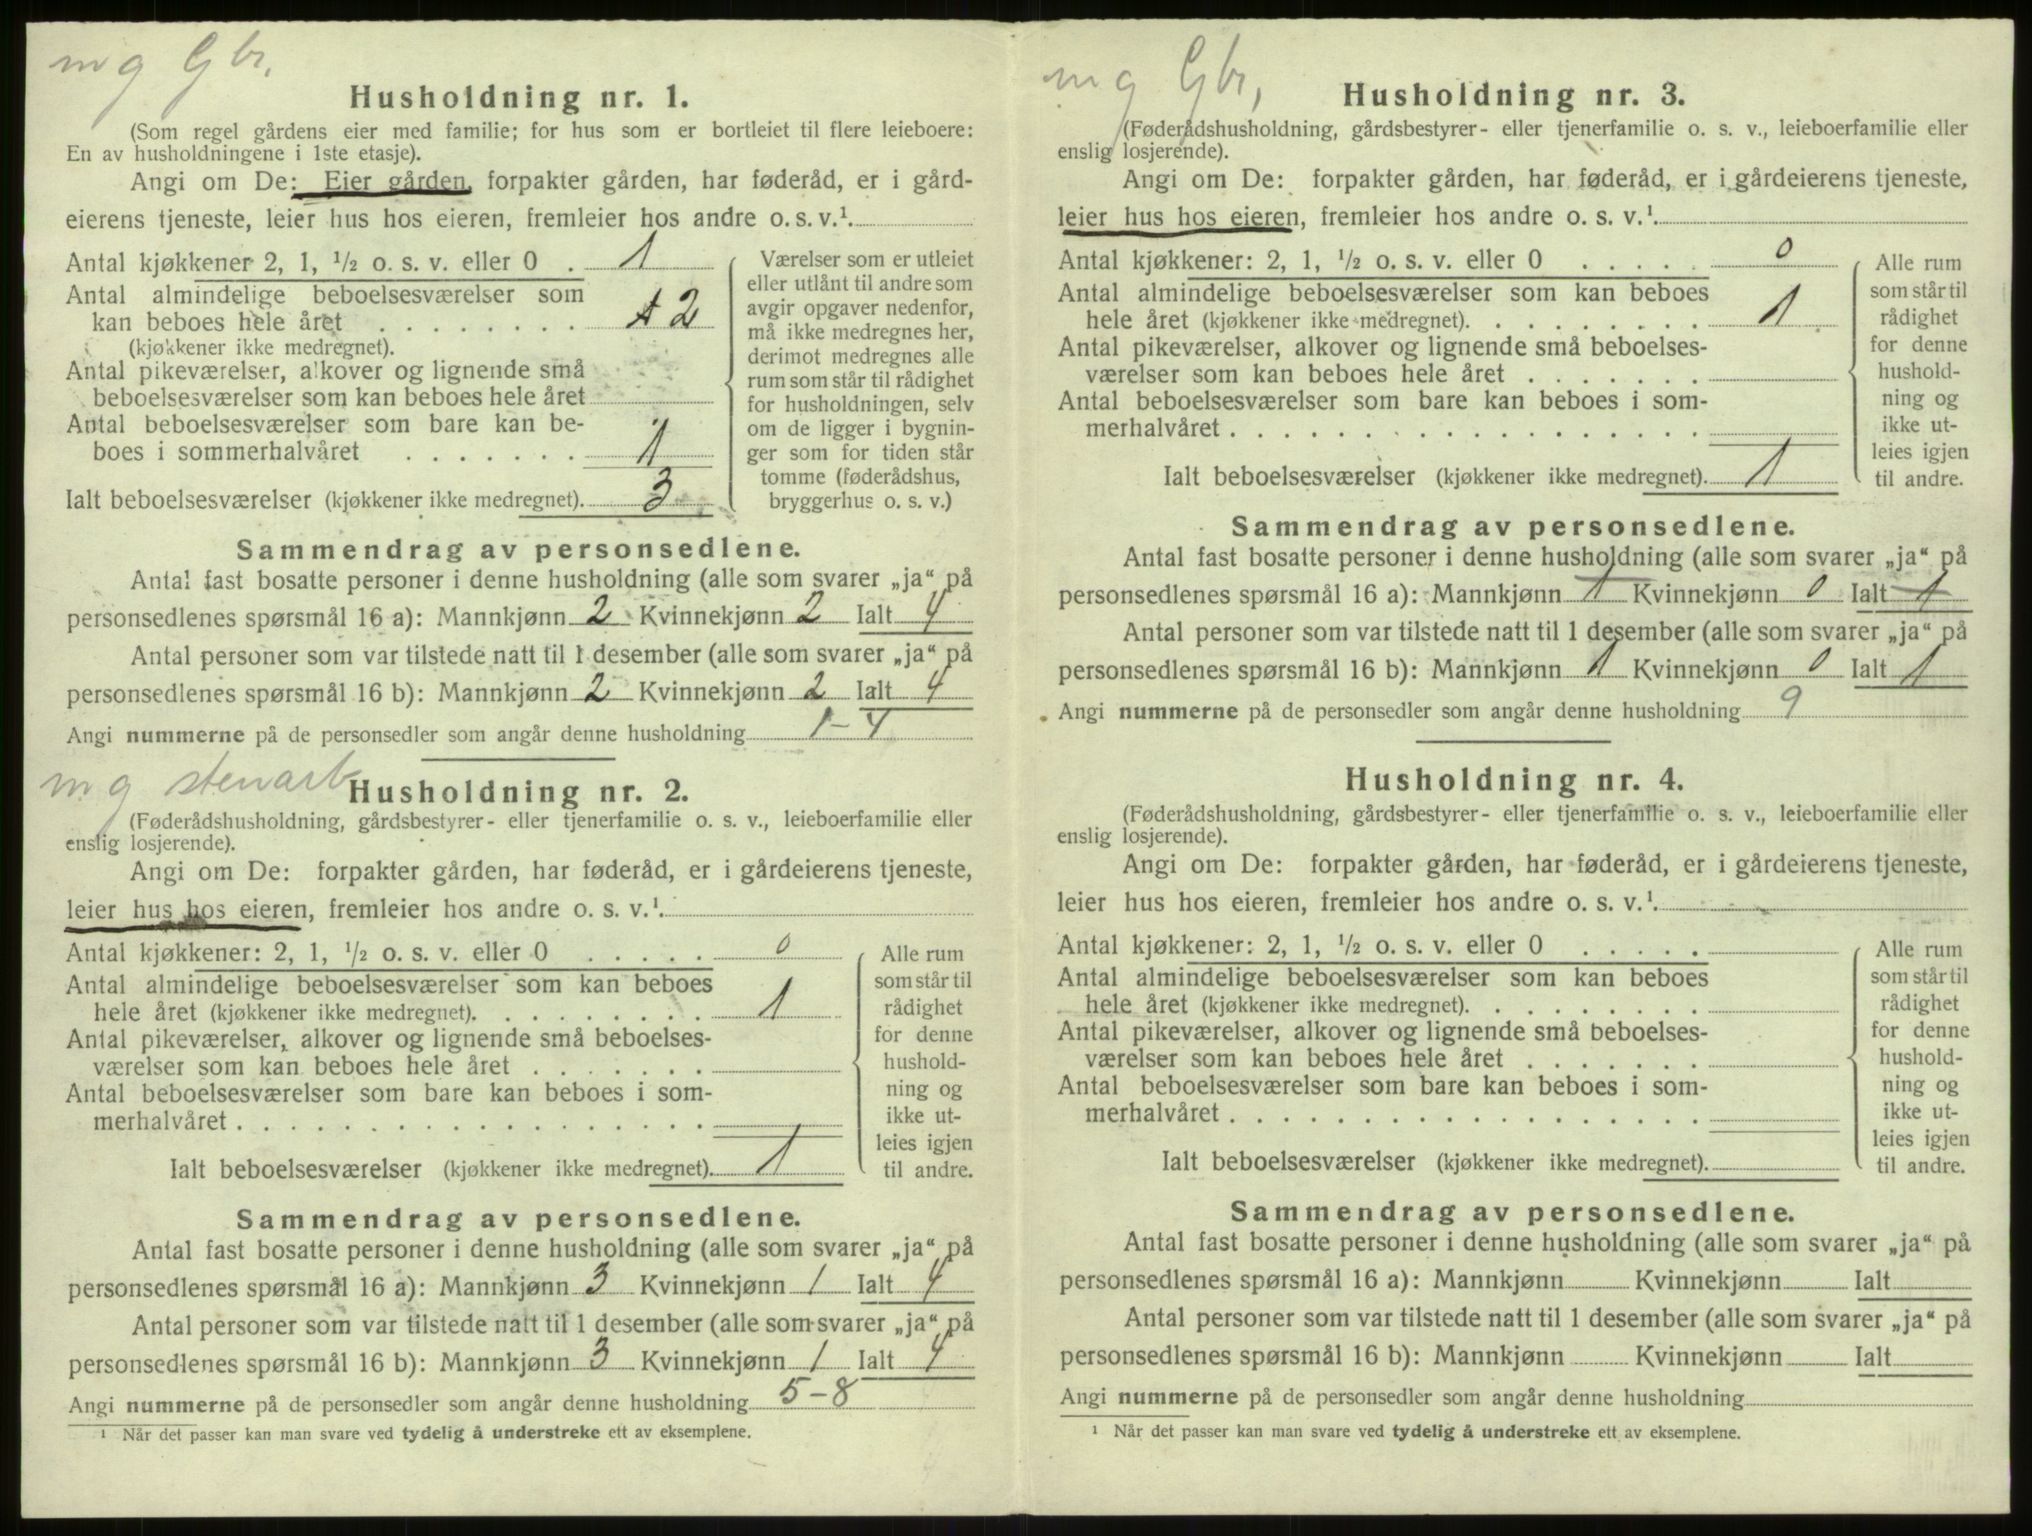 m g Gbr.
Husholdning nr. 1.
(Som regel gårdens eier med familie; for hus som er bortleiet til flere leieboere:
En av husholdningene i 1ste etasje).
Angi om De: Eier gården, forpakter gården, har føderåd, er i gård-
eierens tjeneste, leier hus hos eieren, fremleier hos andre o. s. v.¹.
Antal kjøkkener 2, 1, ½ o. s. v. eller 0 . 1
Antal almindelige beboelsesværelser som
kan beboes hele året . . . . . . . . 2
(kjøkkener ikke medregnet).
Antal pikeværelser, alkover og lignende små
beboelsesværelser som kan beboes hele året
Antal beboelsesværelser som bare kan be-
boes i sommerhalvåret . . . . . . . 1
Ialt beboelsesværelser (kjøkkener ikke medregnet). 3
Værelser som er utleiet
eller utlånt til andre som
avgir opgaver nedenfor,
må ikke medregnes her,
derimot medregnes alle
rum som står til rådighet
for husholdningen, selv
om de ligger i bygnin-
ger som for tiden står
tomme (føderådshus,
bryggerhus o. s. v.)
Sammendrag av personsedlene.
Antal fast bosatte personer i denne husholdning (alle som svarer „ja“ på
personsedlenes spørsmål 16 a): Mannkjønn 2 Kvinnekjønn 2 Ialt 4
Antal personer som var tilstede natt til 1 desember (alle som svarer „ja“ på
personsedlenes spørsmål 16 b): Mannkjønn 2 Kvinnekjønn 2 Ialt 4
Angi nummerne på de personsedler som angår denne husholdning 1-4
m g stenarb
Husholdning nr. 2.
(Føderådshusholdning, gårdsbestyrer- eller tjenerfamilie o. s. v., leieboerfamilie eller
enslig losjerende).
Angi om De: forpakter gården, har føderåd, er i gårdeierens tjeneste,
leier hus hos eieren, fremleier hos andre o. s. v.¹.
Antal kjøkkener: 2, 1, ½ o. s. v. eller 0 . . . . . 0
Antal almindelige beboelsesværelser som kan beboes
hele året (kjøkkener ikke medregnet). . . . . . . . . 1
Antal pikeværelser, alkover og lignende små beboelses-
værelser som kan beboes hele året . . . . . . .
Antal beboelsesværelser som bare kan beboes i som-
merhalvåret . . . . . . . . . . . . . . . . . .
Ialt beboelsesværelser (kjøkkener ikke medregnet). 1
Alle rum
som står til
rådighet
for denne
hushold-
ning og
ikke ut-
leies igjen
til andre.
Sammendrag av personsedlene.
Antal fast bosatte personer i denne husholdning (alle som svarer „ja“ på
personsedlenes spørsmål 16 a): Mannkjønn 3 Kvinnekjønn 1 Ialt 4
Antal personer som var tilstede natt til 1 desember (alle som svarer „ja“ på
personsedlenes spørsmål 16 b): Mannkjønn 3 Kvinnekjønn 1 Ialt 4
Angi nummerne på de personsedler som angår denne husholdning 5-8
¹ Når det passer kan man svare ved tydelig å understreke ett av eksemplene.
m g Gbr,
Husholdning nr. 3.
(Føderådshusholdning, gårdsbestyrer- eller tjenerfamilie o. s. v., leieboerfamilie eller
enslig losjerende).
Angi om De: forpakter gården, har føderåd, er i gårdeierens tjeneste,
leier hus hos eieren, fremleier hos andre o. s. v.¹.
Antal kjøkkener: 2, 1, ½ o. s. v. eller 0 . . . . . 0
Antal almindelige beboelsesværelser som kan beboes
hele året (kjøkkener ikke medregnet). . . . . . . . . 1
Antal pikeværelser, alkover og lignende små beboelses-
værelser som kan beboes hele året . . . . . . .
Antal beboelsesværelser som bare kan beboes i som-
merhalvåret . . . . . . . . . . . . . . . . . .
Ialt beboelsesværelser (kjøkkener ikke medregnet). 1
Alle rum
som står til
rådighet
for denne
hushold-
ning og
ikke ut-
leies igjen
til andre.
Sammendrag av personsedlene.
Antal fast bosatte personer i denne husholdning (alle som svarer „ja“ på
personsedlenes spørsmål 16 a): Mannkjønn 1 Kvinnekjønn 0 Ialt 1
Antal personer som var tilstede natt til 1 desember (alle som svarer „ja“ på
personsedlenes spørsmål 16 b): Mannkjønn 1 Kvinnekjønn 0 Ialt 1
Angi nummerne på de personsedler som angår denne husholdning 9
Husholdning nr. 4.
(Føderådshusholdning, gårdsbestyrer- eller tjenerfamilie o. s. v., leieboerfamilie eller
enslig losjerende).
Angi om De: forpakter gården, har føderåd, er i gårdeierens tjeneste,
leier hus hos eieren, fremleier hos andre o. s. v.¹.
Antal kjøkkener: 2, 1, ½ o. s. v. eller 0 . . . . .
Antal almindelige beboelsesværelser som kan beboes
hele året (kjøkkener ikke medregnet). . . . . . . . .
Antal pikeværelser, alkover og lignende små beboelses-
værelser som kan beboes hele året . . . . . . .
Antal beboelsesværelser som bare kan beboes i som-
merhalvåret . . . . . . . . . . . . . . . . . .
Ialt beboelsesværelser (kjøkkener ikke medregnet).
Alle rum
som står til
rådighet
for denne
hushold-
ning og
ikke ut-
leies igjen
til andre.
Sammendrag av personsedlene.
Antal fast bosatte personer i denne husholdning (alle som svarer „ja“ på
personsedlenes spørsmål 16 a): Mannkjønn Kvinnekjønn Ialt
Antal personer som var tilstede natt til 1 desember (alle som svarer „ja“ på
personsedlenes spørsmål 16 b): Mannkjønn Kvinnekjønn Ialt
Angi nummerne på de personsedler som angår denne husholdning
¹ Når det passer kan man svare ved tydelig å understreke ett av eksemplene.